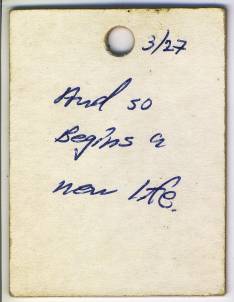 3/27
And so
Begins a
new life.